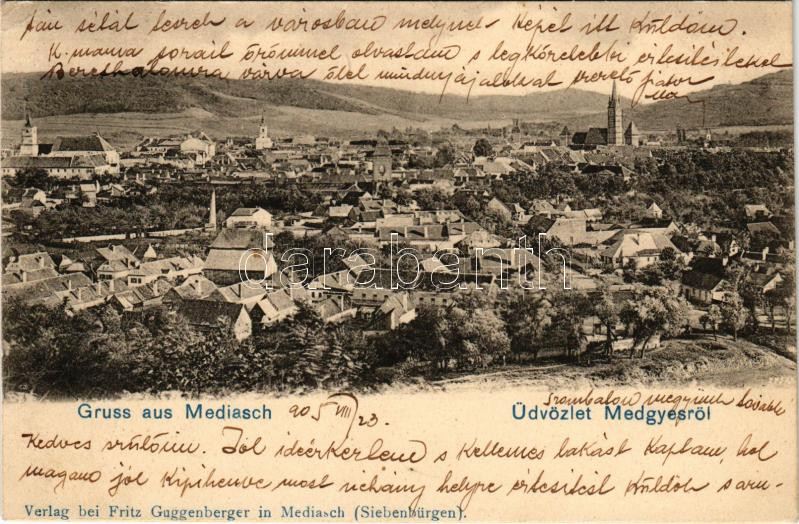 tán sétál level a városban melynek képét itt küldöm.
K. mama sorait örömmel olvastam s legközelebbi értesítésteket
várva ölel mindnyájatokat szerető fiatok
darabanth
Gruss aus Mediasch 905 VIII/23.
Üdvözlet Medgyesről
Szombaton megyünk tovább
Kedves szülőim. Jól ideérkeztem s kellemes lakást kaptam, hol
magano jól kipihenve most néhány helyre értesítést küldök s
Verlag bei Fritz Guggenberger in Mediasch (Siebenbürgen).